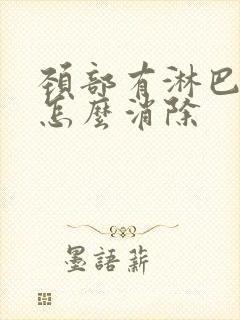 頸部有淋巴
怎麼消除
墨語薪